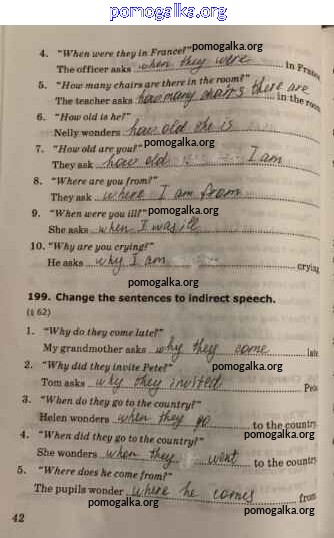 pomogalka.org
4. "When were they in France?" pomogalka.org
The officer asks when they were in France
5. "How many chairs are there in the room?" pomogalka.org
The teacher asks how many chairs there are in the room
6. "How old is he?" pomogalka.org
Nelly wonders how old he is
7. "How old are you?" pomogalka.org
They ask how old I am
8. "Where are you from?" pomogalka.org
They ask where I am from
9. "When were you ill?" pomogalka.org
She asks when I was ill
10. "Why are you crying?" pomogalka.org
He asks why I am crying
pomogalka.org
199. Change the sentences to indirect speech.
(§ 62) pomogalka.org
1. "Why do they come late?"
My grandmother asks why they come late
2. "Why did they invite Pete?" pomogalka.org
Tom asks why they invited Pete
3. "When do they go to the country?" pomogalka.org
Helen wonders when they go to the country
4. "When did they go to the country?" pomogalka.org
She wonders when they went to the country
5. "Where does he come from?" pomogalka.org
The pupils wonder where he comes from
42 pomogalka.org pomogalka.org